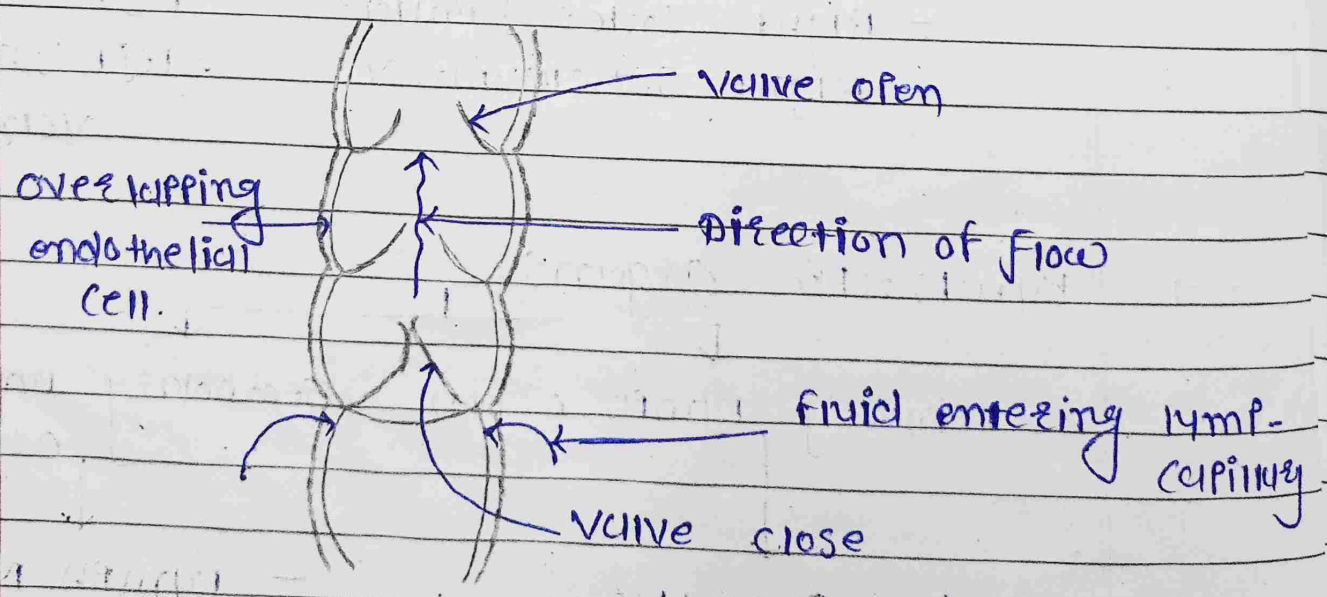 Valve open
overlapping
endothelial
cell.
Direction of flow
fluid entering lymp-
capillary
Valve close